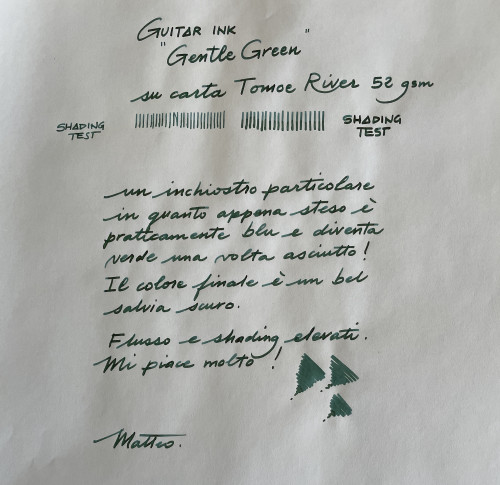 GUITAR INK
"Gentle Green"
su carta Tomoe River 52 gsm
SHADING TEST
SHADING TEST
un inchiostro particolare
in quanto appena steso è
pratcamente blu e diventa
verde una volta asciutto!
Il colore finale è un bel
salvia scuro.
Flusso e shading elevati.
Mi piace molto!
Matteo.